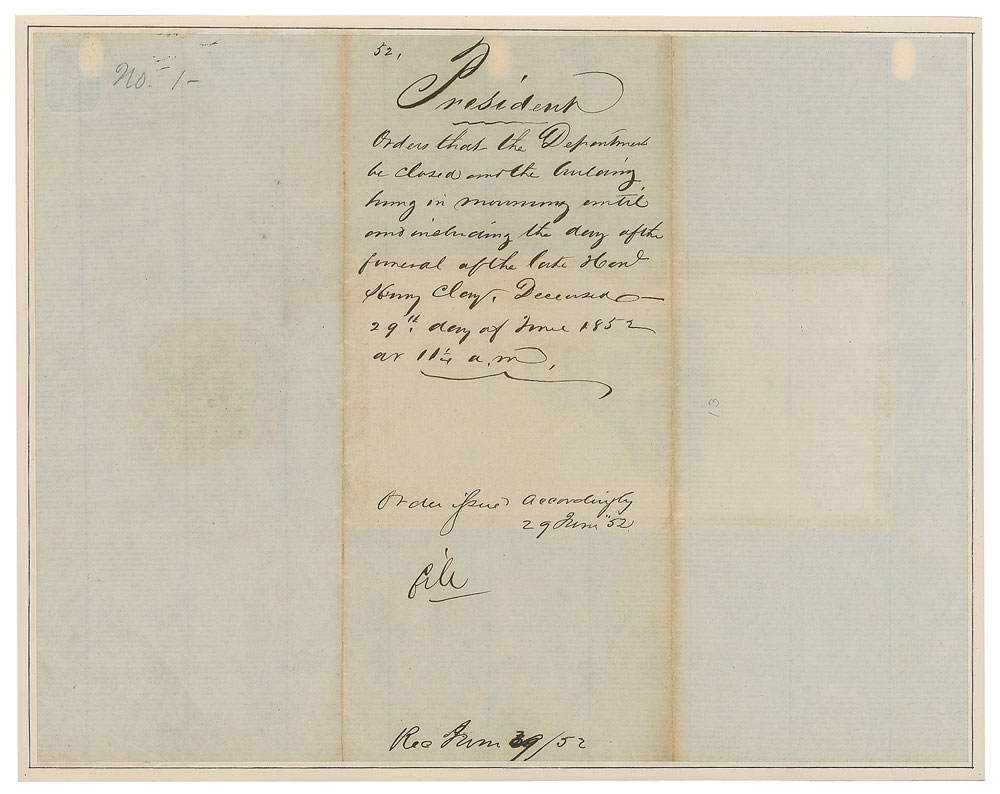 No. 1-
52,
President
Orders that the Department
be closed and the building
hung in mourning until
and including the day of the
funeral of the late Honl
Henry Clay. Deceased —
29th. day of June 1852
at 11 1/4 a.m.
13
Order issued accordingly
29 June "52
file
Rec June 29/52